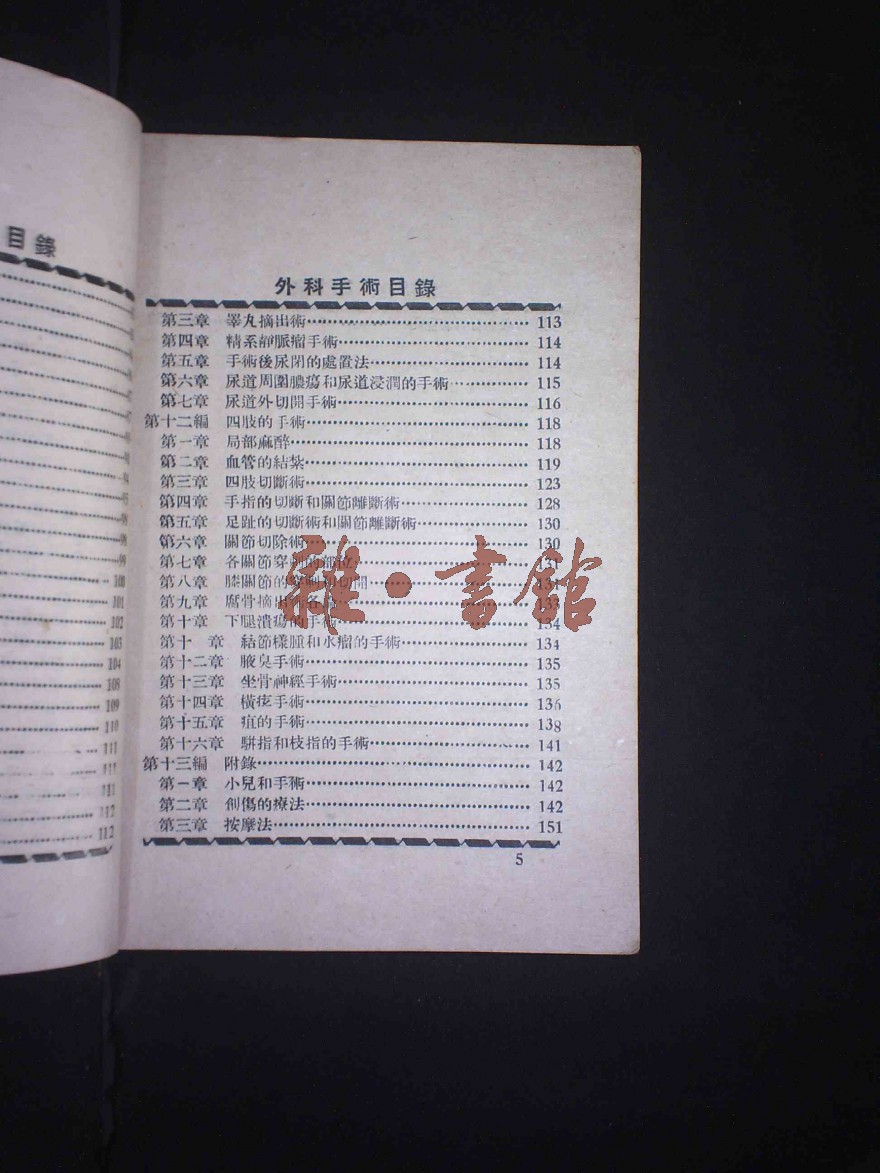 目錄
99
100
101
102
103
104
108
109
110
111
111
112
112
外科手術目錄
第三章 睪丸摘出術 113
第四章 精系靜脈瘤手術 114
第五章 手術後尿閉的處置法 114
第六章 尿道周圍膿瘍和尿道浸潤的手術 115
第七章 尿道外切開手術 116
第十二編 四肢的手術 118
第一章 局部麻醉 118
第二章 血管的結紮 119
第三章 四肢切斷術 123
第四章 手指的切斷和關節離斷術 128
第五章 足趾的切斷術和關節離斷術 130
第六章 關節切除術 130
第七章 各關節穿刺的部位 131
第八章 膝關節的穿刺和切開
第九章 腐骨摘出術各論 133
第十章 下腿潰瘍的手術 134
第十一章 結節樣腫和水瘤的手術 134
第十二章 腋臭手術 135
第十三章 坐骨神經手術 135
第十四章 橫痃手術 136
第十五章 疽的手術 138
第十六章 駢指和枝指的手術 141
第十三編 附錄 142
第一章 小兒和手術 142
第二章 創傷的療法 142
第三章 按摩法 151
5
雜·書館